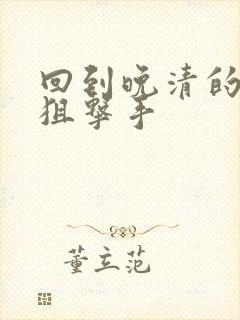 回到晚清的
狙擊手
董立范